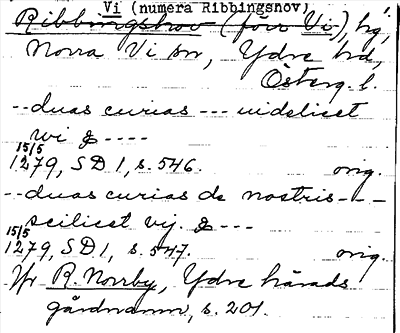 Vi (numera Ribbingshov)
Ribbingshov (förr Vi), hg,
Norra Vi sn, Ydre hd,
Österg. l.
-- duas curias --- uidelicet
wi & ----
15/5
1279, SD 1, s. 546. orig.
-- duas curias de nostris ---
scilicet vij. & ---
15/5
1279, SD 1, s. 547. orig.
Jfr R. Norrby, Ydre härads
gårdnamn, s. 201.